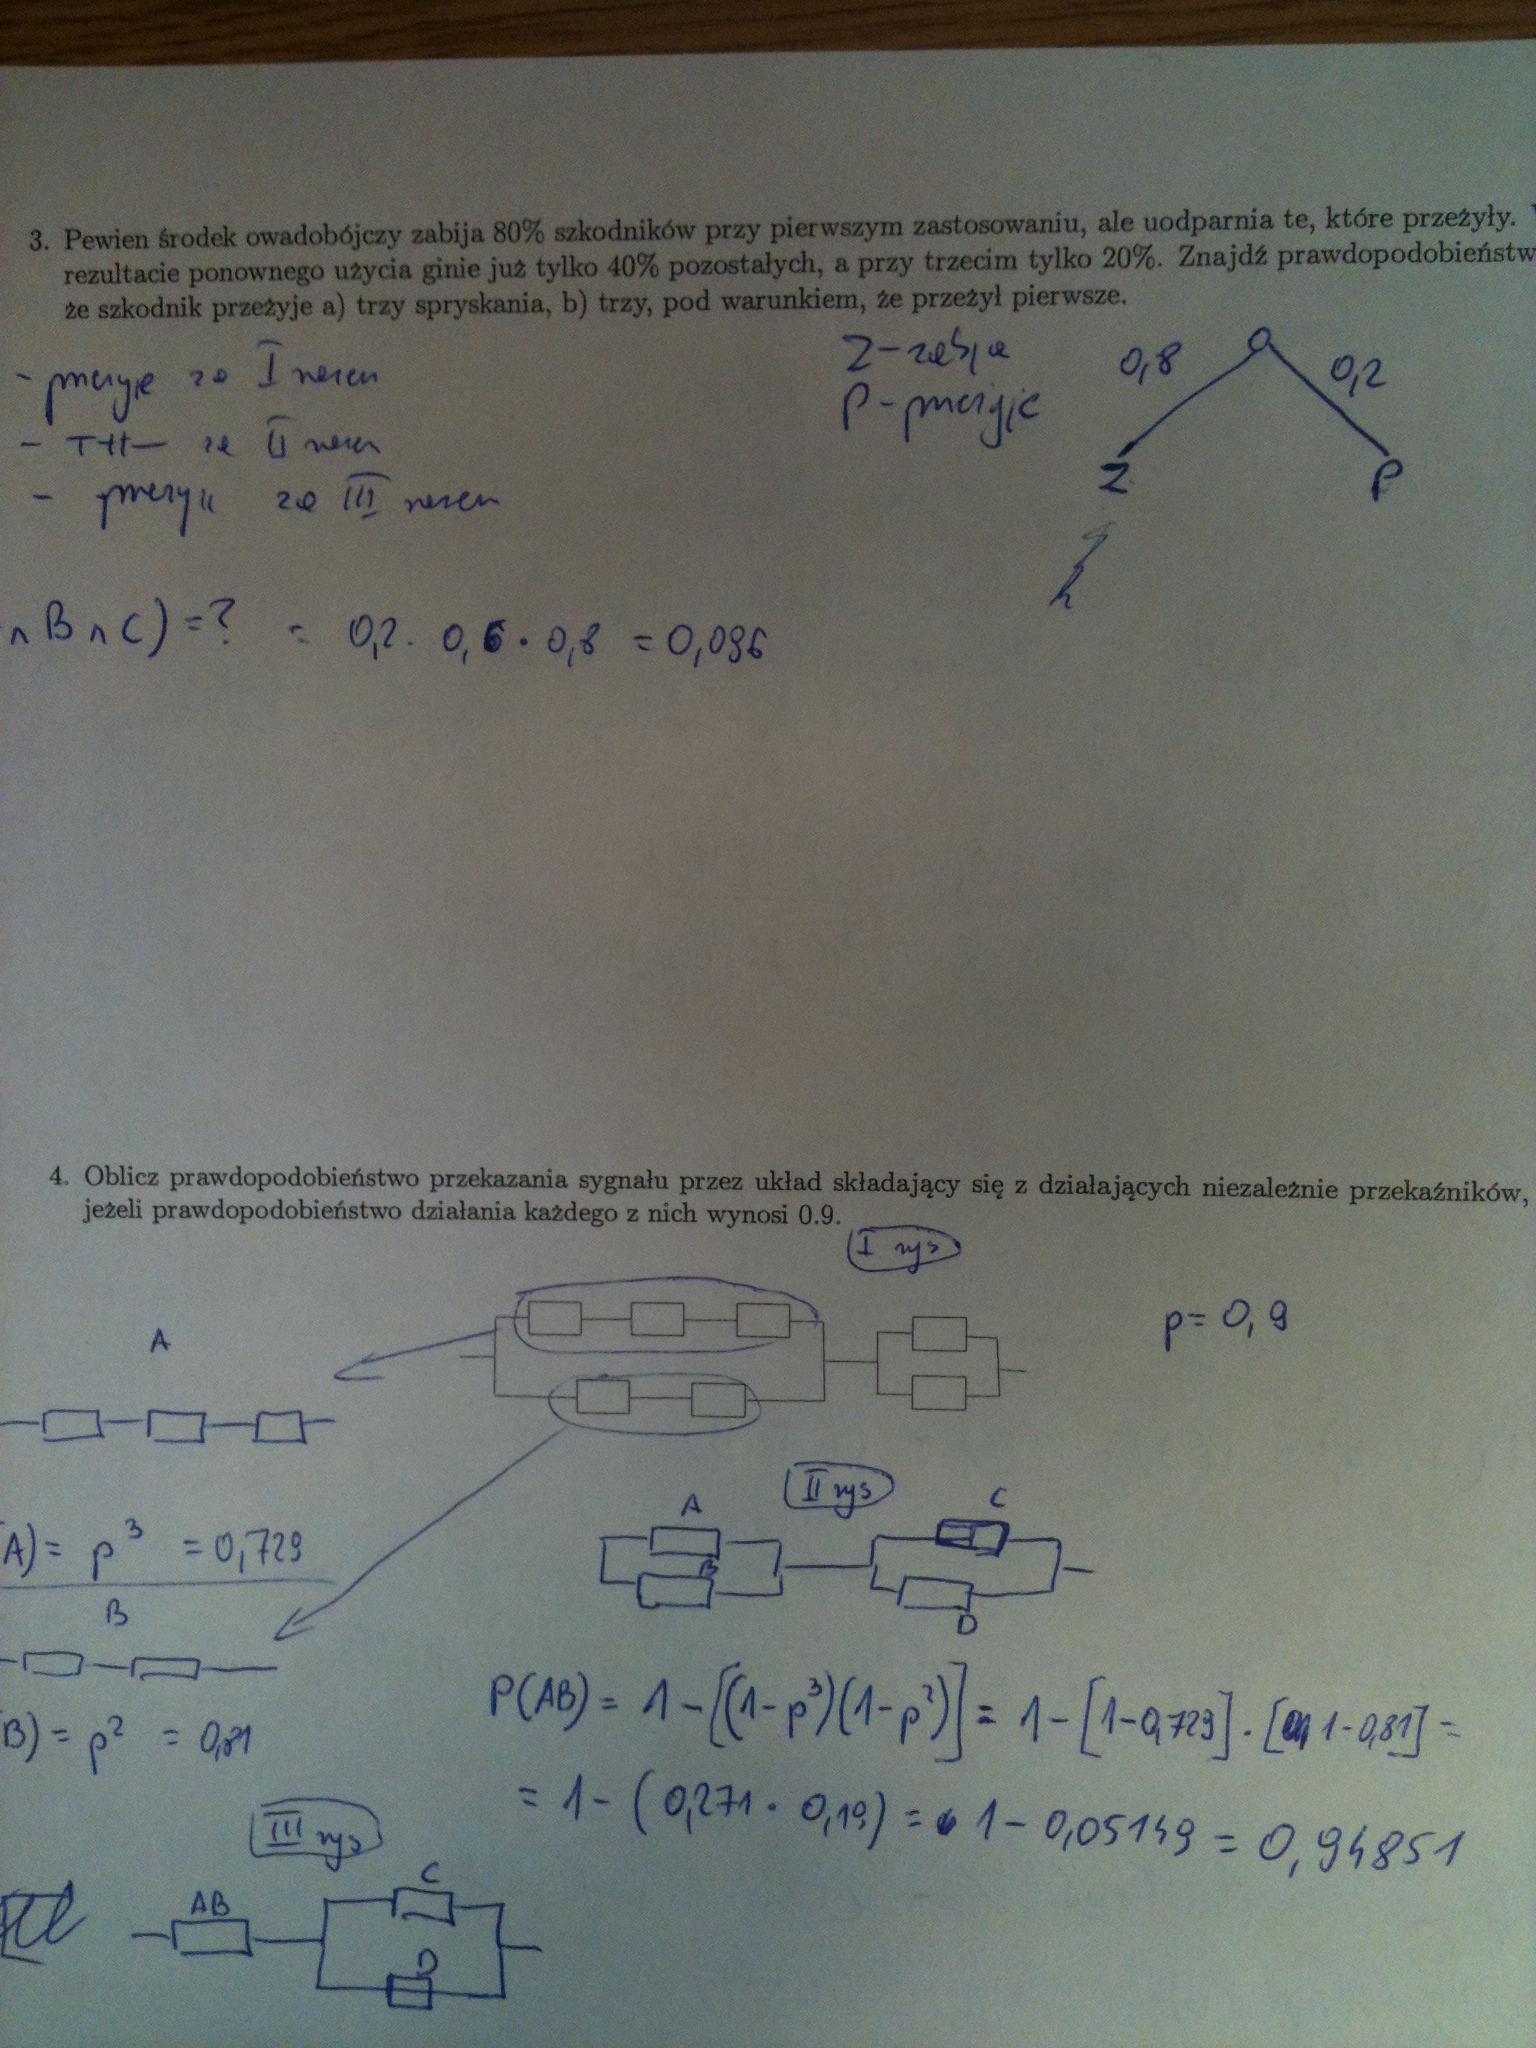 3. Pewien środek owadobójczy zabija 80% szkodników przy pierwszym zastosowaniu, ale uodparnia te, które przeżyły.
rezultacie ponownego użycia ginie już tylko 40% pozostałych, a przy trzecim tylko 20%. Znajdź prawdopodobieństw
że szkodnik przeżyje a) trzy spryskania, b) trzy, pod warunkiem, że przeżył pierwsze.
- przeżyje za I razem
- -II- za II razem
- przeżyje za III razem
Z - zabija
P - przeżyje
0,8 0,2
Z P
∩ B ∩ C) = ? = 0,2 · 0,6 · 0,8 = 0,096
4. Oblicz prawdopodobieństwo przekazania sygnału przez układ składający się z działających niezależnie przekaźników,
jeżeli prawdopodobieństwo działania każdego z nich wynosi 0.9.
I rys
p = 0,9
A
II rys
A C
B
D
A) = p³ = 0,729
B
B) = p² = 0,81
P(AB) = 1 - [(1-p³)(1-p²)] = 1 - [1-0,729] · [1-0,81] =
= 1 - (0,271 · 0,19) = 1 - 0,05149 = 0,94851
III rys
AB C
D